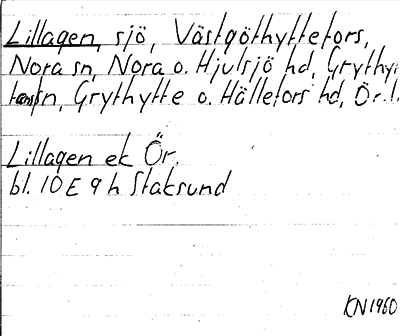 Lillagen, sjö, Västgöthyttefors,
Nora sn, Nora o. Hjulsjö hd, Grythyt-
sn, Grythytte o. Hällefors hd, Ör. l.
Lillagen ek Ör.
bl. 10 E 9 h Staksund
KN 1960